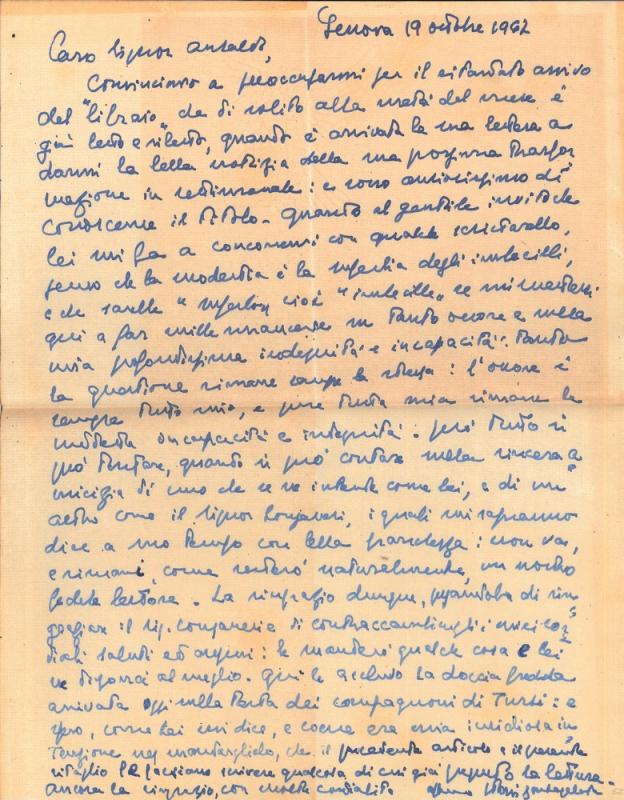 Genova 19 ottobre 1962
Caro Signor Ansaldo,
Cominciavo a preoccuparmi per il ritardato arrivo
del "libraio", che di solito alla metà del mese è
già letto e riletto, quando è arrivata la sua lettera a
darmi la bella notizia della sua prossima trasfor
mazione in settimanale: e sono ansiosissimo di
conoscerne il titolo. Quanto al gentile invito che
lei mi fa a concorrervi con qualche scritterello,
penso che la modestia è la superbia degli imbecilli,
e che sarebbe "superbo, cioè "imbecille" se mi mettessi
qui a far mille smancerie su tanto onore e sulla
mia profondissima indegnità e incapacità. Tanto
la questione rimane sempre la stessa: l'onore è
sempre tutto mio, e pure tutta mia rimane la
suddetta incapacità e indegnità. però tutto si
può tentare, quando si può contare sulla sincera a
micizia di uno che se ne intende come lei, e di un
altro come il Signor Longanesi, i quali mi sapranno
dire a suo tempo con bella franchezza: non vai,
e rimani, come resterò naturalmente, un nostro
fedele lettore. La ringrazio dunque, pregandola di rin
graziare il sig. e di contraccambiargli i miei cor
diali saluti ed auguri: le manderò qualche cosa e lei
ne disporrà al meglio. Qui le accludo la doccia fredda
arrivata oggi sulla testa dei compagnoni di Tursi: e
spero, come lei mi dice, e come era mia insidiosa in
tenzione nel mandarglielo, che il precedente articolo e il presente
ritaglio le facciano scrivere qualcosa di cui già la lettura.
ancora la ringrazio, con molta cordialità